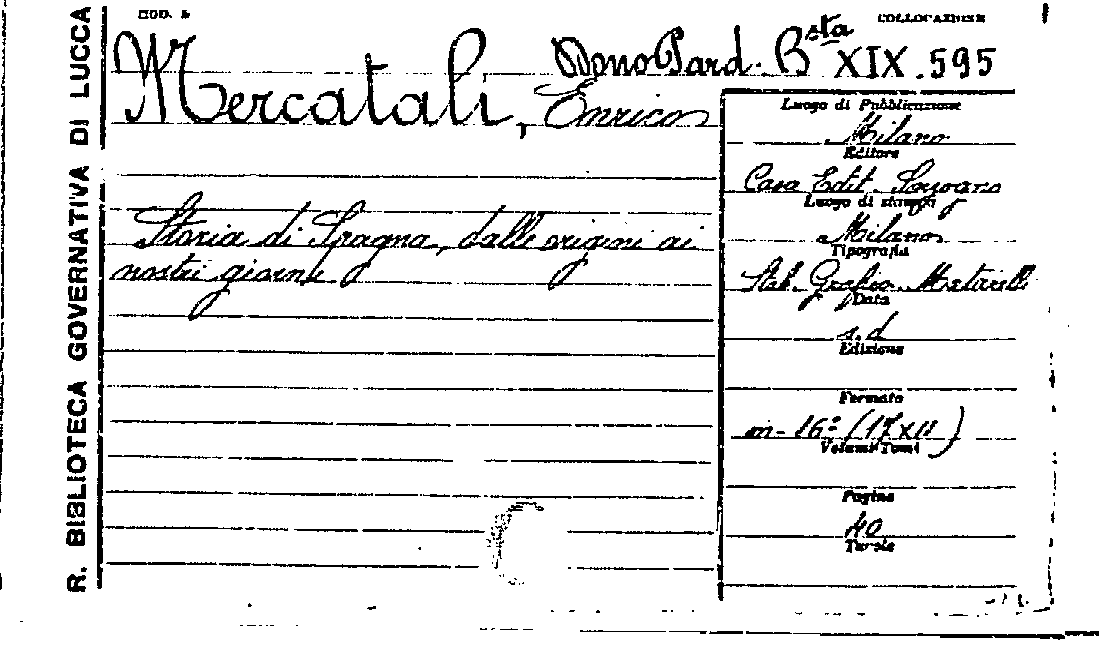 R. BIBLIOTECA GOVERNATIVA DI LUCCA
MOD. 5
COLLOCAZIONE
Dono Pard. Bsta XIX.595
Mercatali, Enrico
Storia di Spagna, dalle origini ai
nostri giorni
Luogo di Pubblicazione
Milano
Editore
Casa Edit. Sonzogno
Luogo di stampa
Milano
Tipografia
Stab. Grafico Matarelli
Data
s.d
Edizione
Formato
in-16º (17x11)
Volumi Tomi
Pagine
40
Tavole